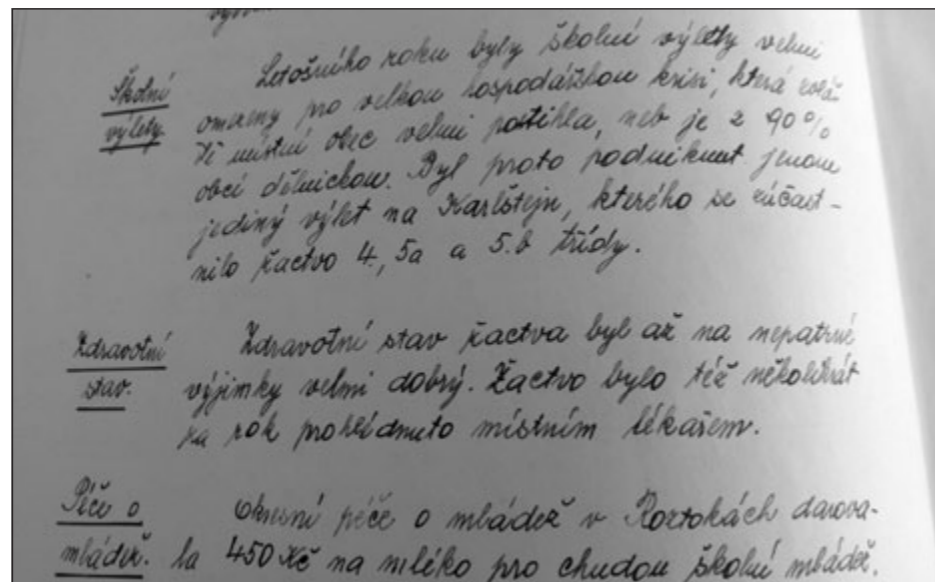 Letošního roku byly školní výlety velmi
Školní
výlety.
omezeny pro velkou hospodářskou krisi, která zvláš-
tě místní obec velmi postihla, neb je z 90%
obcí dělnickou. Byl proto podniknut jenom
jediný výlet na Karlštejn, kterého se zúčast-
nilo žactvo 4., 5a a 5.b třídy.
Zdravotní
stav.
Zdravotní stav žactva byl až na nepatrné
výjimky velmi dobrý. Žactvo bylo též několikrát
za rok prohlédnuto místním lékařem.
Péče o
mládež.
Okresní péče o mládež v Roztokách darova-
la 450 Kč na mléko pro chudou školní mládež.